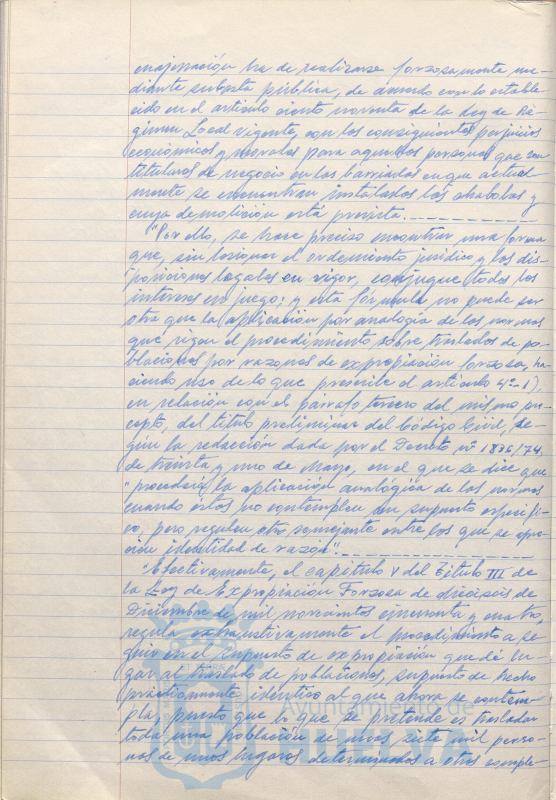 enajenación ha de realizarse forzosamente me-
diante subasta pública, de acuerdo con lo estable-
cido en el artículo ciento noventa de la Ley de Ré-
gimen Local vigente, con los consiguientes perjuicios
económicos y morales para aquellas personas que son
titulares de negocio en las barriadas en que actual-
mente se encuentran instaladas las chabolas y
cuya demolición está prevista.
"Por ello, se hace preciso encontrar una forma
que, sin lesionar el ordenamiento jurídico y las dis-
posiciones legales en vigor, conjugue todos los
intereses en juego; y esta fórmula no puede ser
otra que la aplicación por analogía de las normas
que rigen el procedimiento sobre traslados de po-
blaciones por razones de expropiación forzosa, ha-
ciendo uso de lo que prescribe el artículo 4º-1)
en relación con el párrafo tercero del mismo pre-
cepto, del título preliminar del Código Civil, se-
gún la redacción dada por el Decreto nº 1836/74,
de treinta y uno de Mayo, en el que se dice que
"procederá la aplicación analógica de las normas
cuando éstas no contemplen un supuesto específi-
co, pero regulen otro semejante entre los que se apre-
cie identidad de razón".
"Efectivamente, el capítulo V del Título III de
la Ley de Expropiación Forzosa de dieciséis de
Diciembre de mil novecientos cincuenta y cuatro,
regula exhaustivamente el procedimiento a se-
guir en el supuesto de expropiación que dé lu-
gar al traslado de poblaciones, supuesto de hecho
prácticamente idéntico al que ahora se contem-
pla, puesto que lo que se pretende es trasladar
toda una población de unas siete mil perso-
nas de unos lugares determinados a otros comple-
Ayuntamiento de
HUELVA